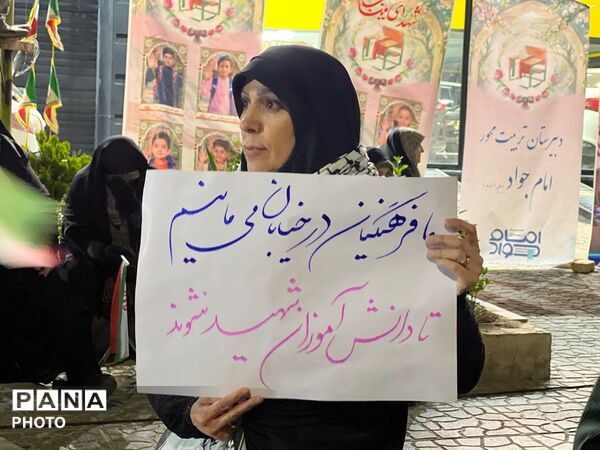 شهدای میناب
دبیرستان تربیت محور
امام جواد
امام
جواد
ما فرهنگیان در خیابان می مانیم
تا دانش آموزان شهید نشوند
PANA
PHOTO